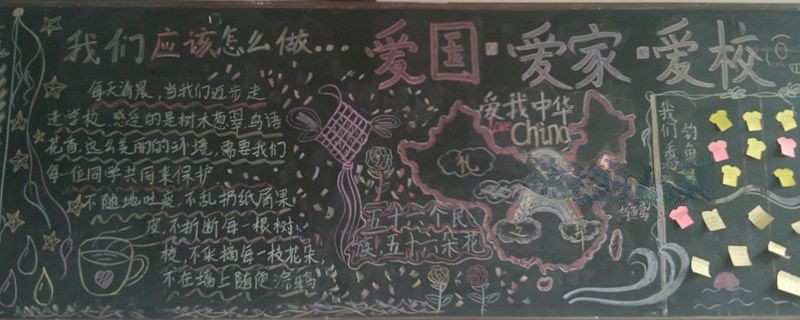 我们应该怎么做...
每天清晨,当我们迈步走
进学校,感受的是树木葱翠鸟语
花香,这么美丽的环境,需要我们
每一位同学共同来保护
不随地吐痰,不乱扔纸屑果
皮,不折断每一根树
枝,不采摘每一枝花朵,
不在墙上随便涂鸦
爱国·爱家·爱校
爱我中华
love
China
礼
五十六个民
族,五十六朵花
我们看
钓鱼
钓鱼岛